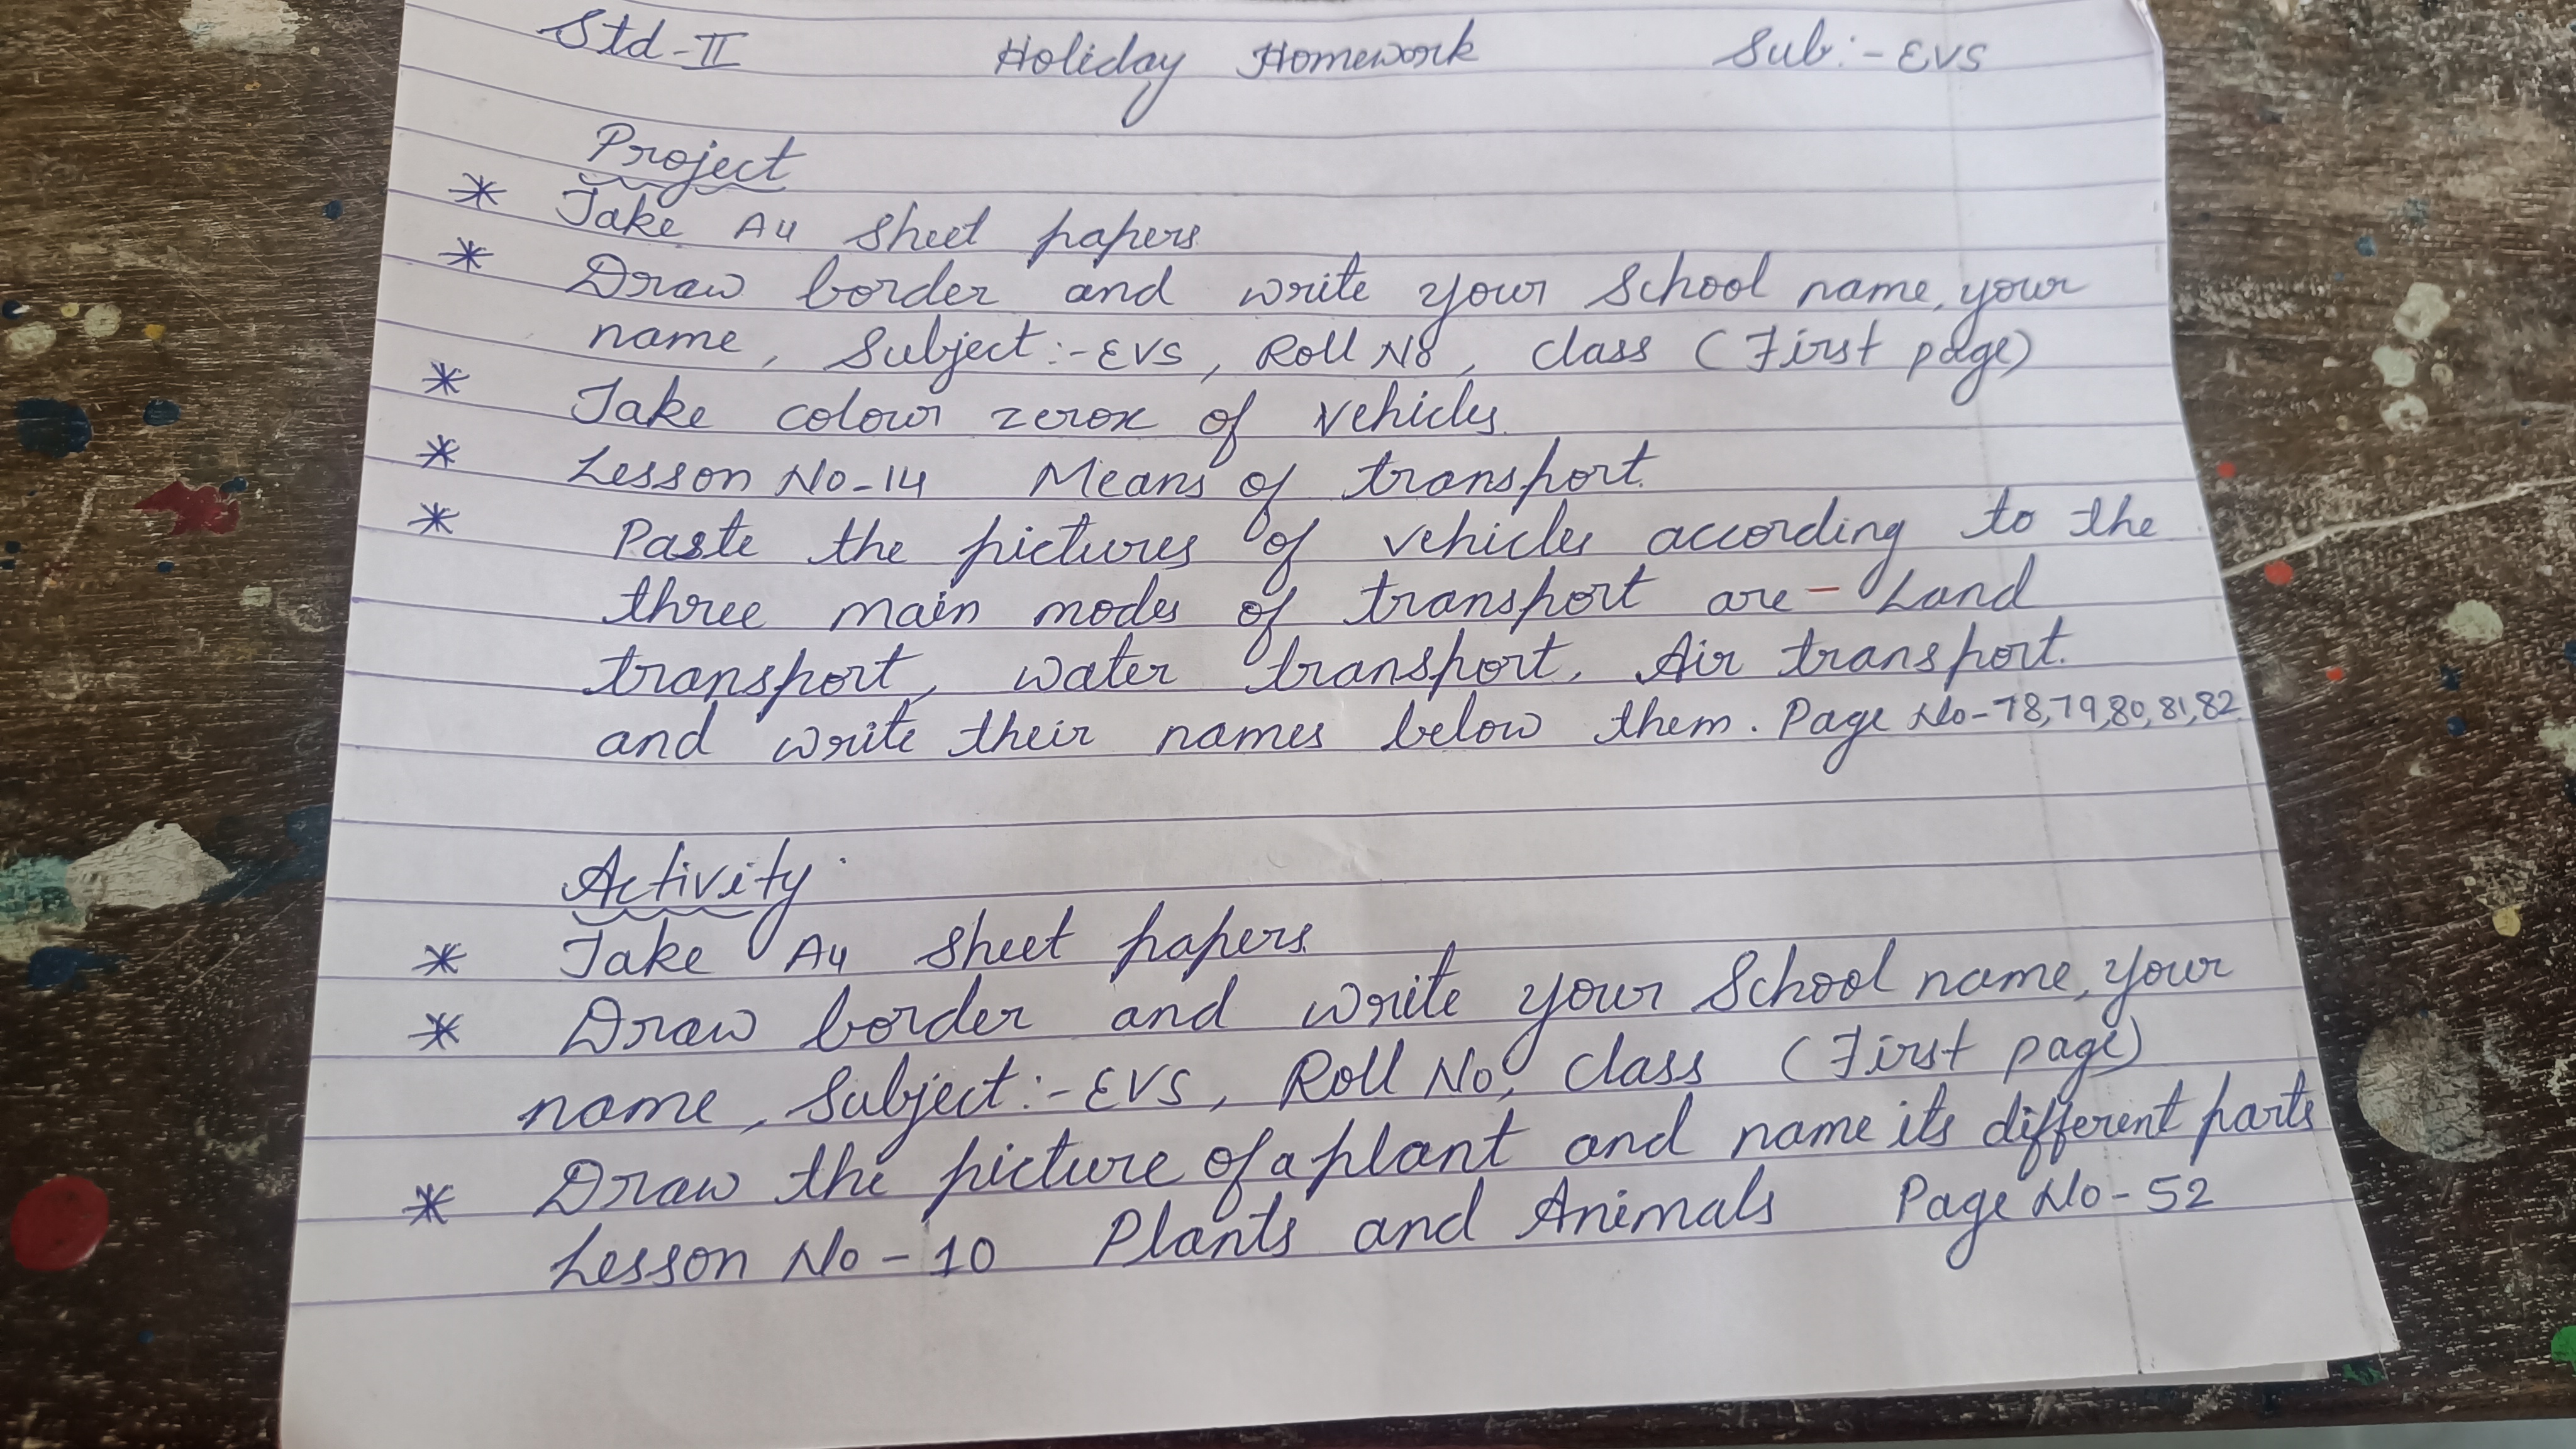 Std-II Holiday Homework Sub:- EVS
Project
* Take A4 sheet papers
* Draw border and write your School name, your
name, Subject:-EVS, Roll No, class (First page)
* Take colour zerox of vehicles.
* Lesson No-14 Means of transport.
* Paste the pictures of vehicles according to the
three main modes of transport are - Land
transport, water transport, Air transport.
and write their names below them. Page No-78,79,80,81,82
Activity
* Take A4 sheet papers.
* Draw border and write your School name, your
name, Subject:-EVS, Roll No, Class (First page)
* Draw the picture of a plant and name its different parts
Lesson No-10 Plants and Animals Page No-52